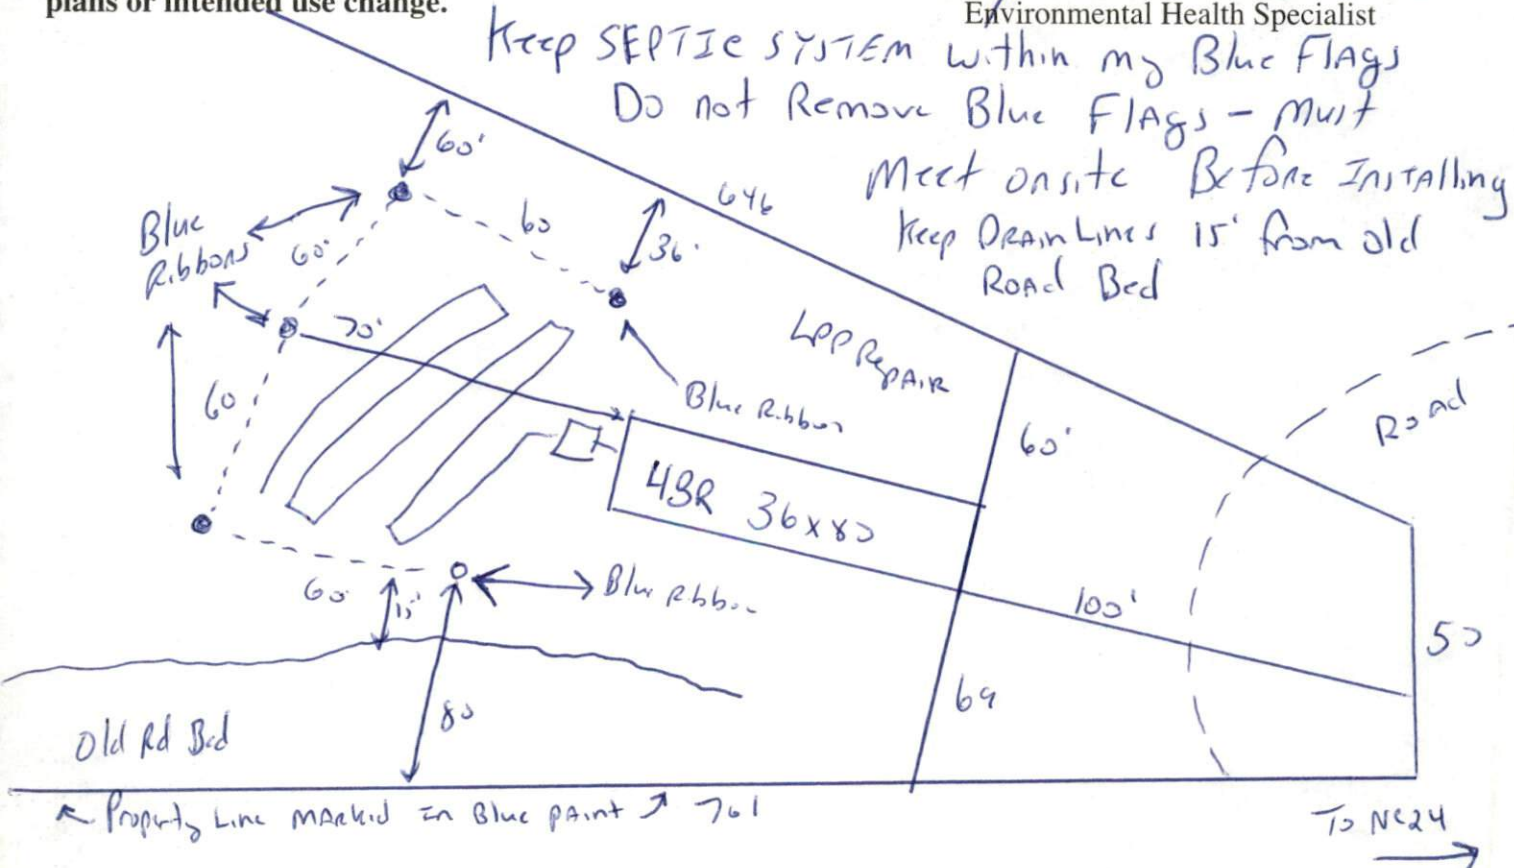 plans or intended use change.
Environmental Health Specialist
Keep SEPTIC SYSTEM within my Blue Flags
Do not Remove Blue Flags - Must
Meet onsite Before Installing
Keep Drain Lines 15' from old
Road Bed
60'
646
60
36'
Blue
Ribbons
60'
70'
LPP Repair
Blue Ribbon
Road
60
60'
4BR 36x80
60
15'
Blue Ribbon
100'
50
80
69
Old Rd Bed
Property Line Marked In Blue paint 761
To NC24